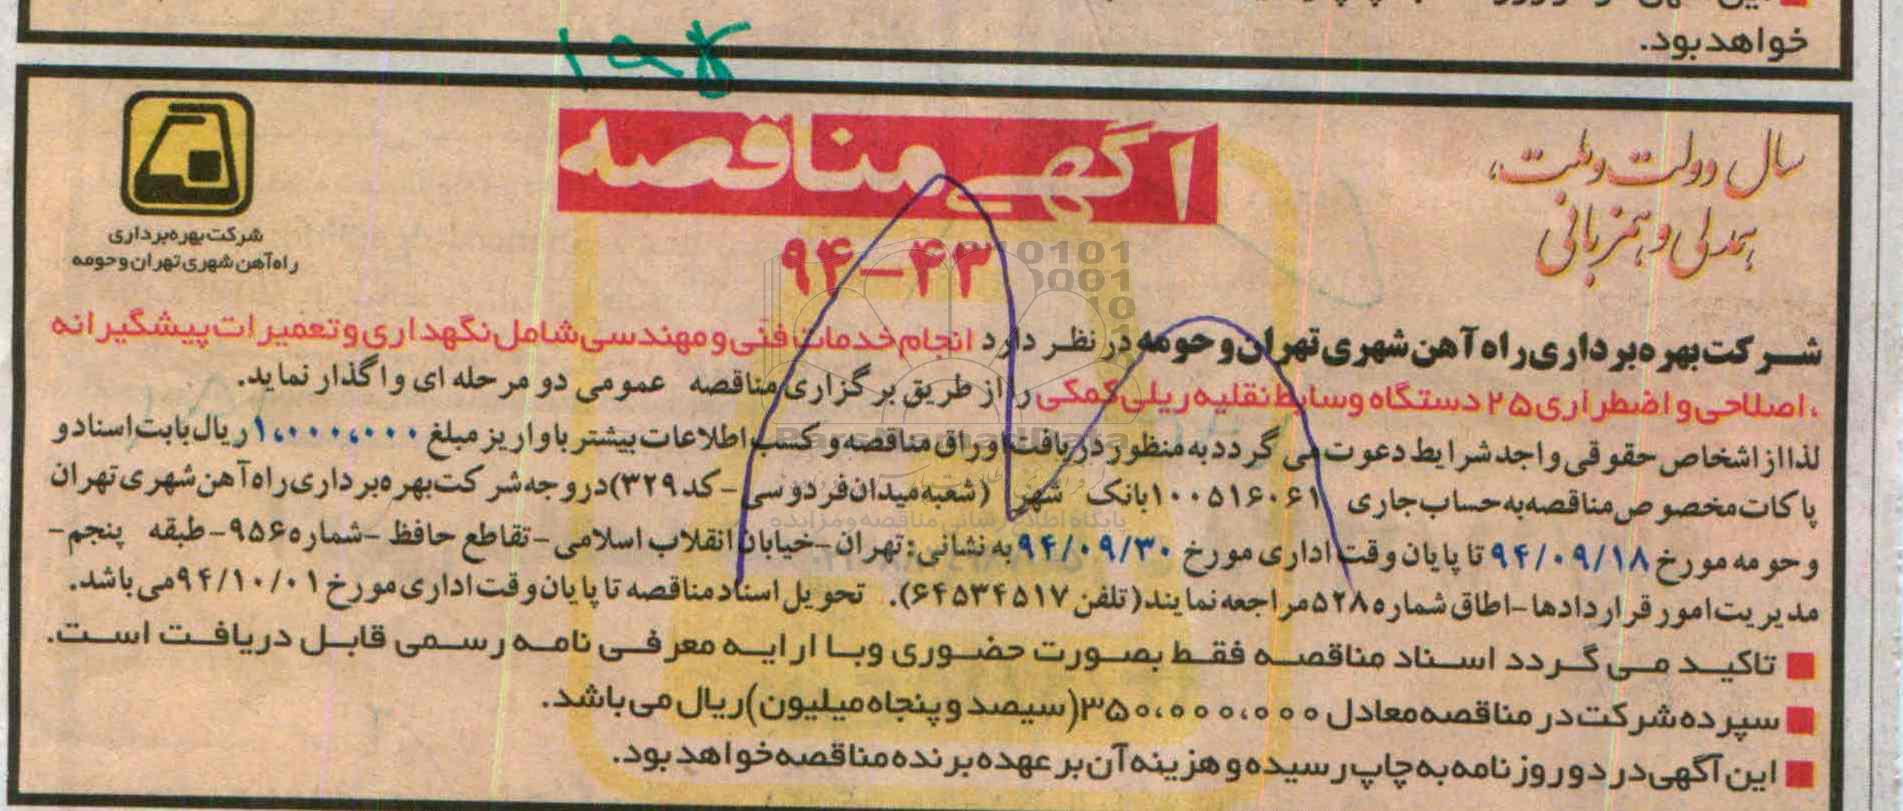 خواهد بود.
۱۹۸
آگهی مناقصه
سال دولت و ملت،
همدلی و همزبانی
شرکت بهره‌برداری
راه‌آهن شهری تهران و حومه
۹۴-۴۳
شرکت بهره‌برداری راه آهن شهری تهران و حومه در نظر دارد انجام خدمات فنّی و مهندسی شامل نگهداری و تعمیرات پیشگیرانه
، اصلاحی و اضطراری ۲۵ دستگاه وسایط نقلیه ریلی کمکی را از طریق برگزاری مناقصه عمومی دو مرحله ای واگذار نماید.
لذا از اشخاص حقوقی واجد شرایط دعوت می گردد به منظور دریافت اوراق مناقصه و کسب اطلاعات بیشتر با واریز مبلغ ۱،۰۰۰،۰۰۰ ریال بابت اسناد و
پاکات مخصوص مناقصه به حساب جاری ۱۰۰۵۱۶۰۶۱ بانک شهر (شعبه میدان فردوسی - کد ۳۲۹) در وجه شرکت بهره‌برداری راه آهن شهری تهران
و حومه مورخ ۹۴/۰۹/۱۸ تا پایان وقت اداری مورخ ۹۴/۰۹/۳۰ به نشانی: تهران - خیابان انقلاب اسلامی - تقاطع حافظ - شماره ۹۵۶ - طبقه پنجم -
مدیریت امور قراردادها - اطاق شماره ۵۲۸ مراجعه نمایند (تلفن ۶۴۵۳۴۵۱۷). تحویل اسناد مناقصه تا پایان وقت اداری مورخ ۹۴/۱۰/۰۱ می باشد.
تاکید می گردد اسناد مناقصه فقط بصورت حضوری وبا ارایه معرفی نامه رسمی قابل دریافت است.
سپرده شرکت در مناقصه معادل ۳۵۰،۰۰۰،۰۰۰ (سیصد و پنجاه میلیون) ریال می باشد.
این آگهی در دو روزنامه به چاپ رسیده و هزینه آن بر عهده برنده مناقصه خواهد بود.